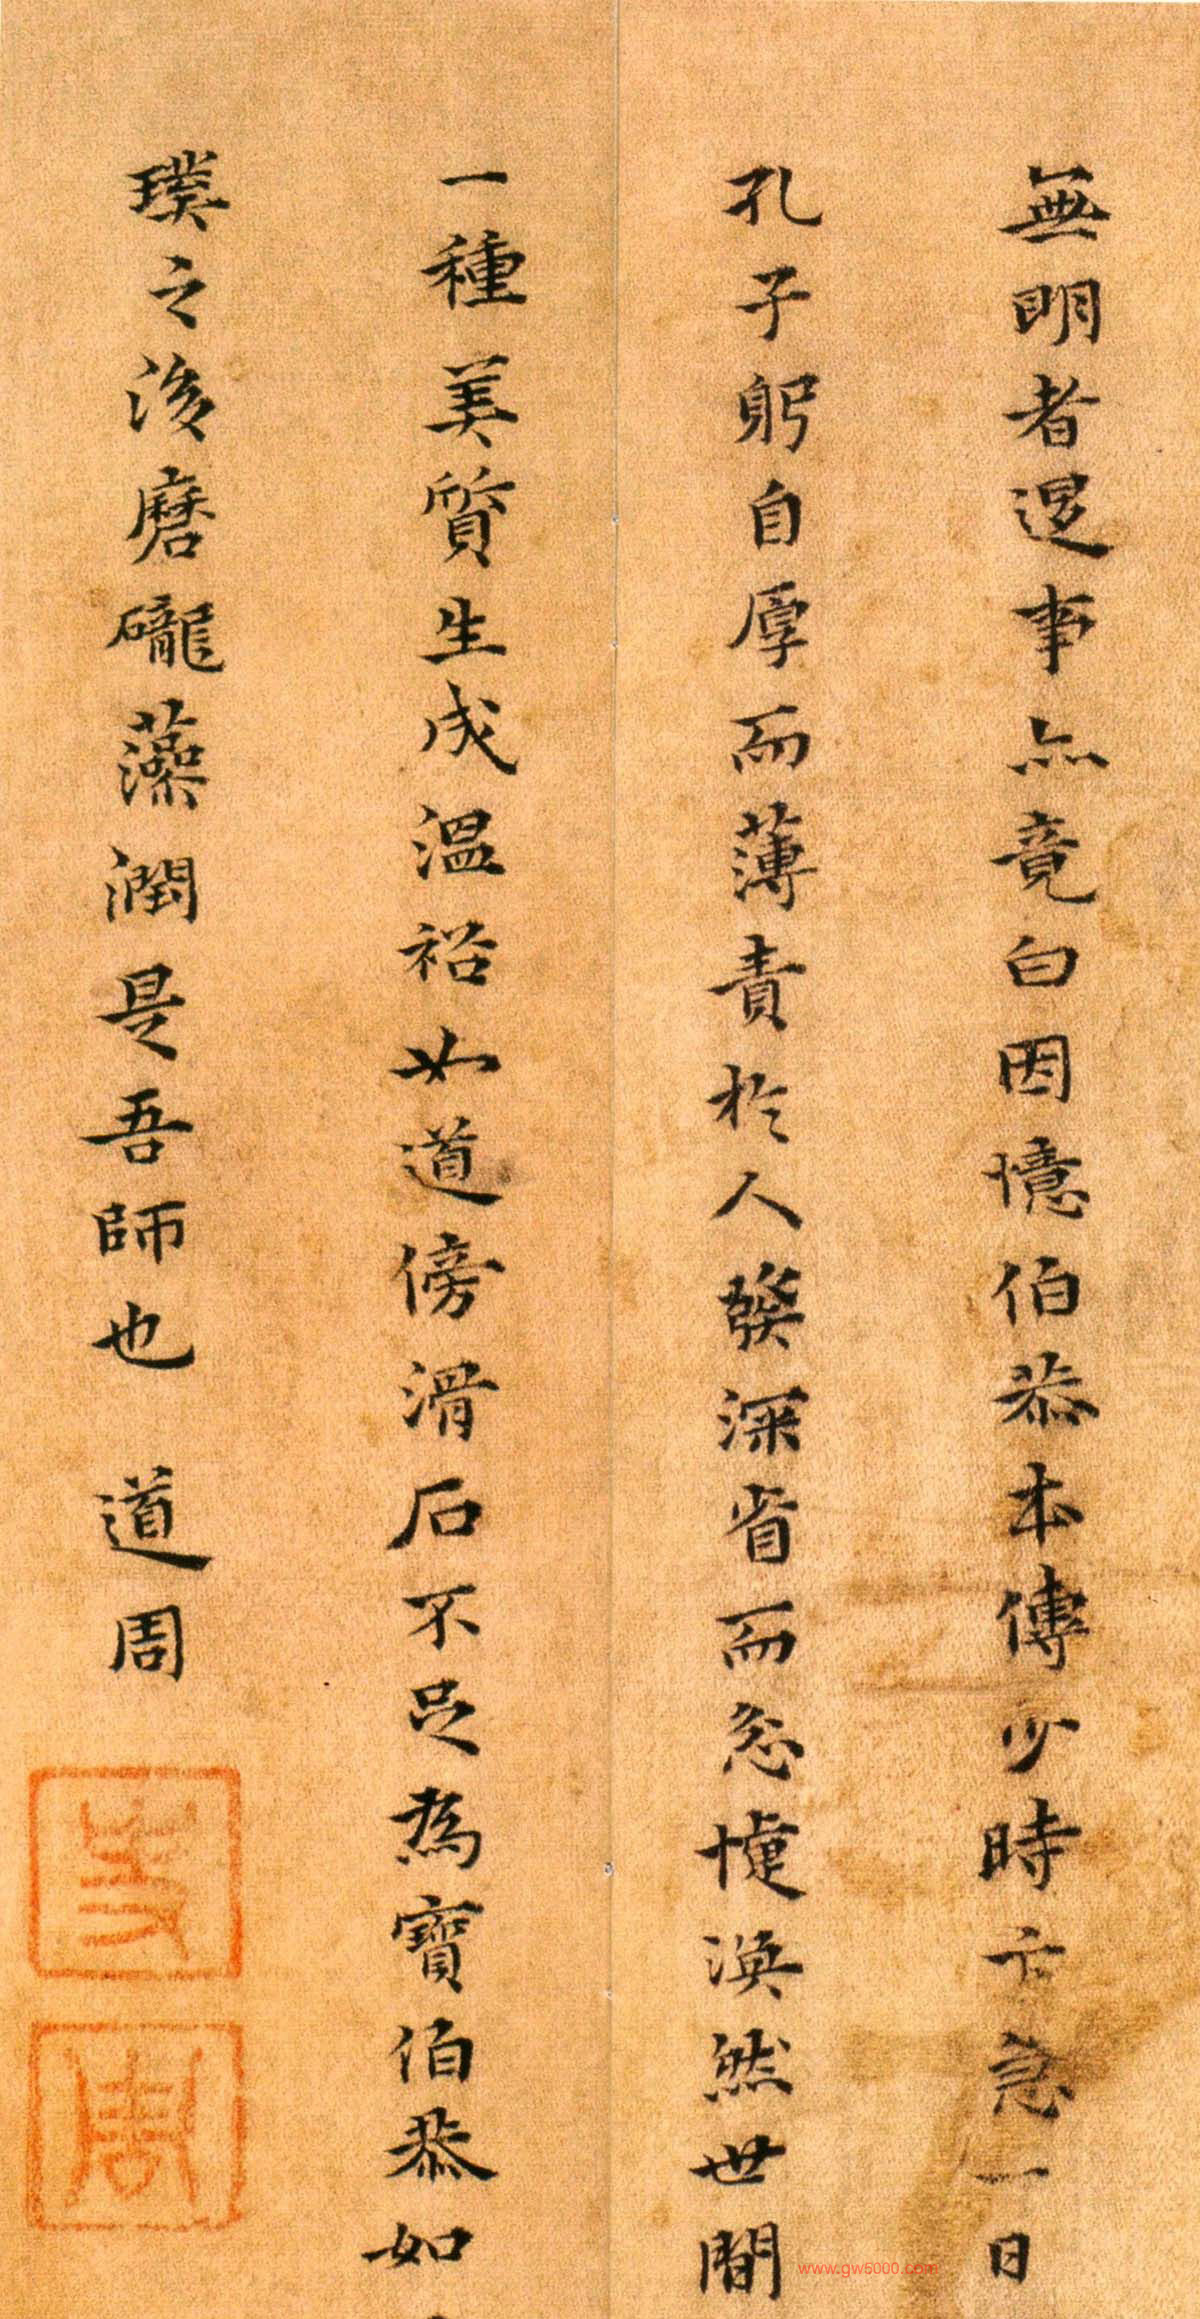 無明者遇事亦竟白因憶伯恭本傳少時卞急一日
孔子躬自厚而薄責於人發深省而忿懥渙然世間
一種美質生成溫裕如道傍滑石不足為寶伯恭如
璞之後磨礲藻潤是吾師也 道周
道
周
www.gw5000.com